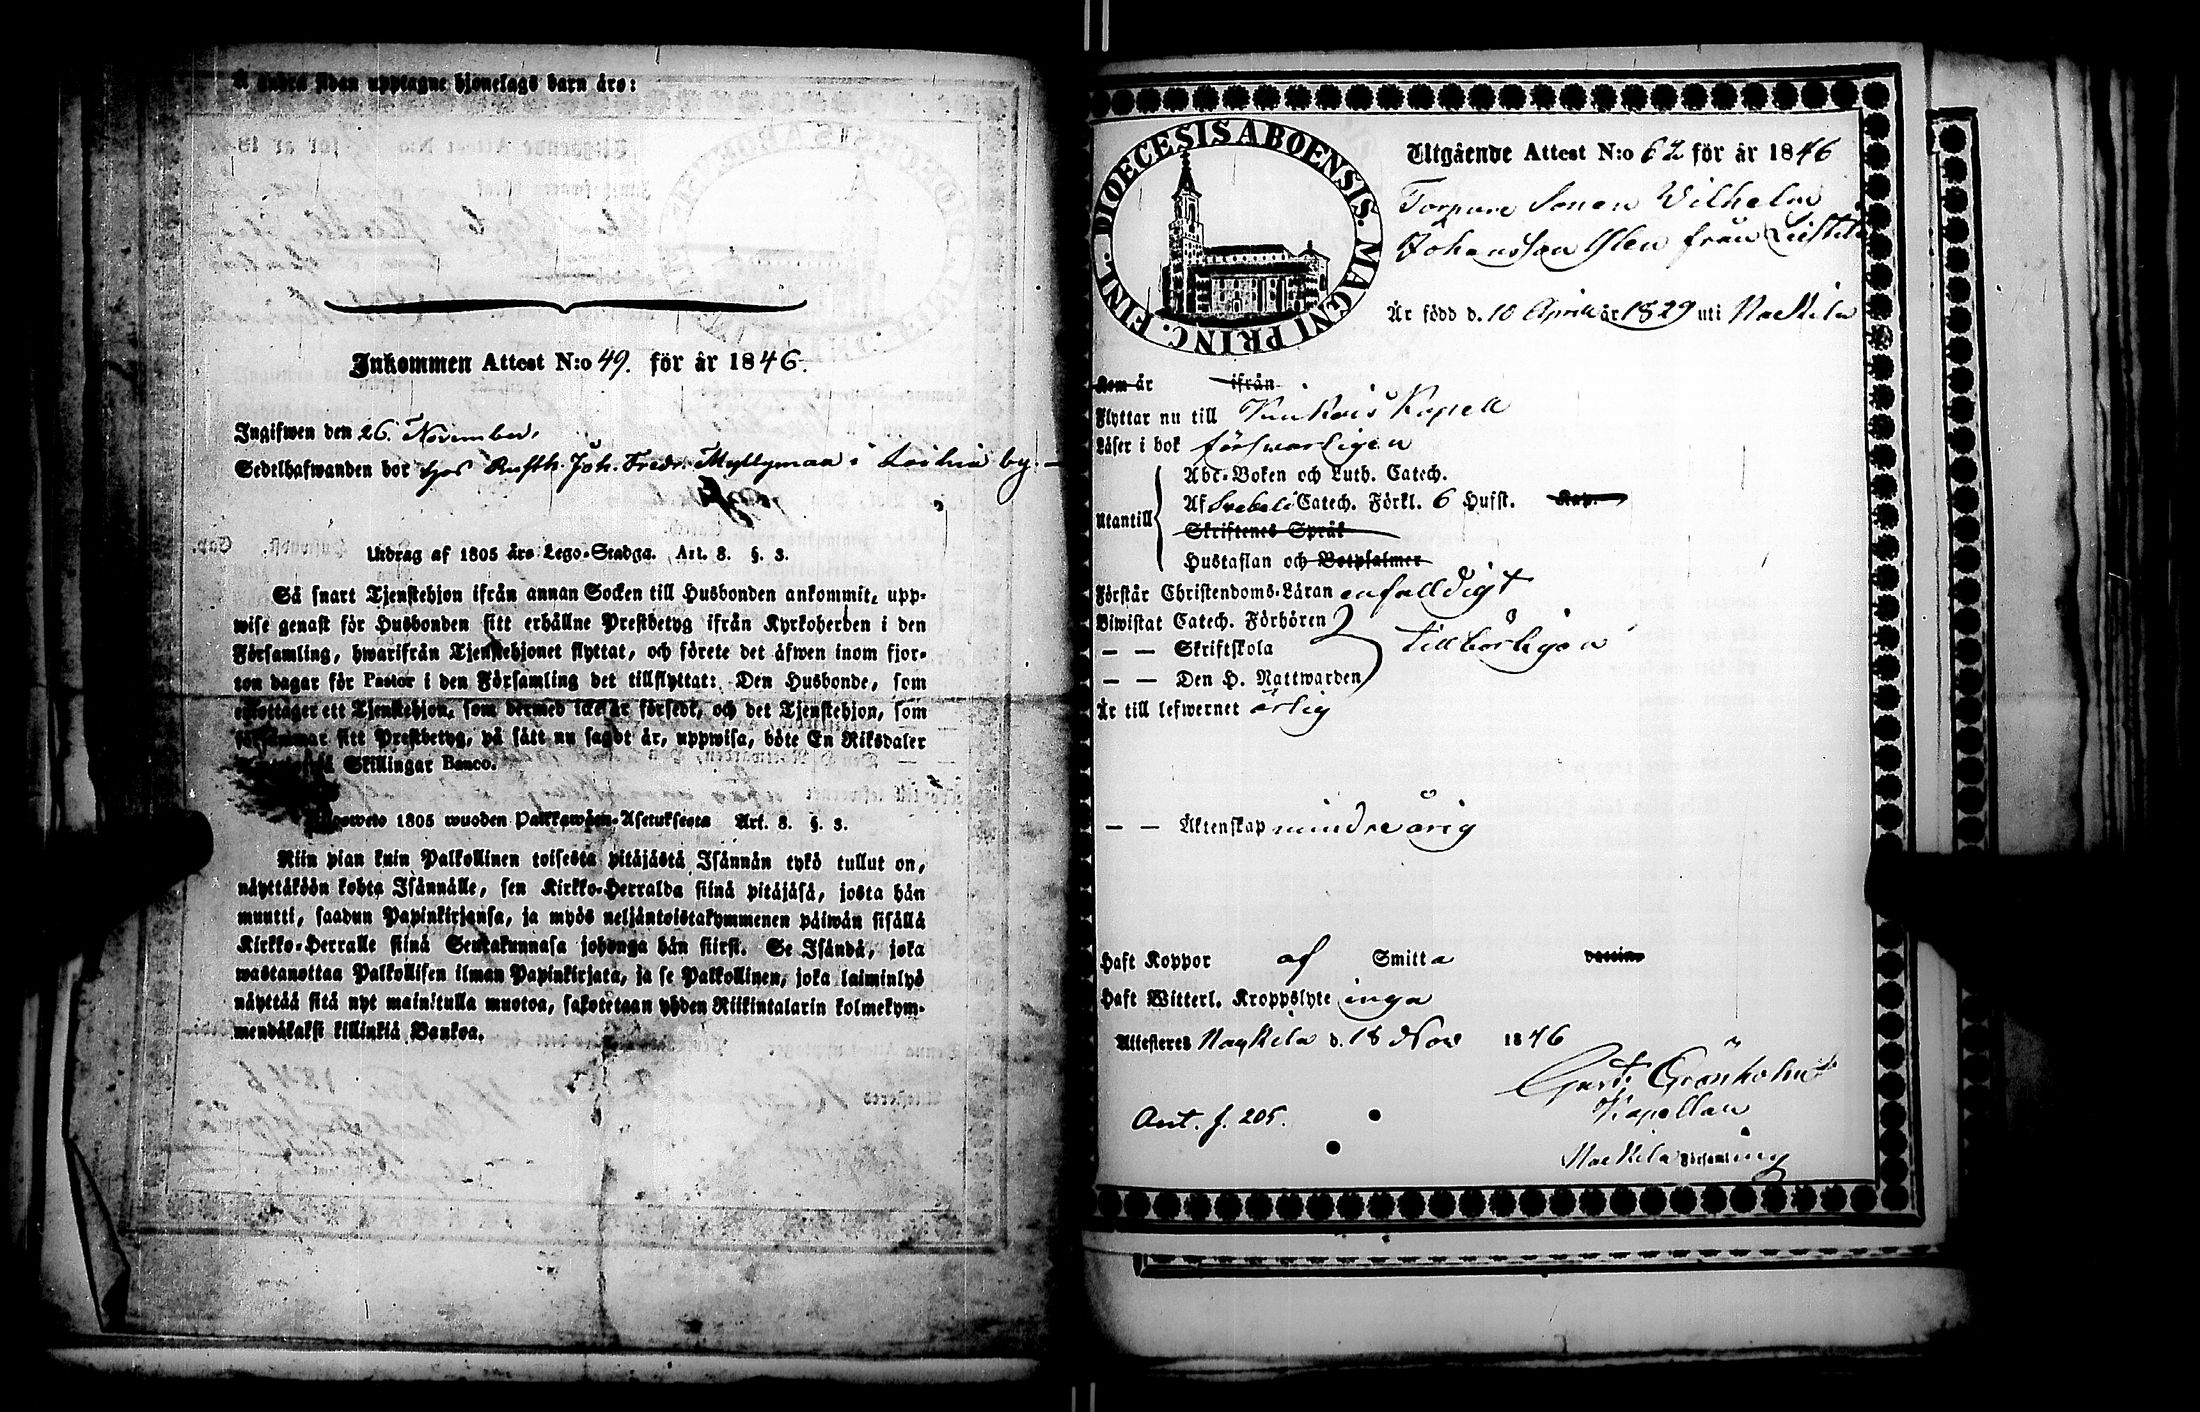 å andra sidan upptagne hjonelags barn äro:
Inkommen Attest N:o 49. för år 1846.
Ingifwen den 26. November.
Sedelhafwanden bor hos Rusth. Joh. Fredr. Myllymaa i by
Utdrag af 1805 års Lego-Stadga. Art. 8. §. 3.
Så snart Tjenstehjon ifrån annan Socken till Husbonden ankommit, upp-
wise genast för Husbonden sitt erhållne Prestbetyg ifrån Kyrkoherden i den
Församling, hwarifrån Tjenstehjonet flyttat, och förete det äfwen inom fjor-
ton dagar för Pastor i den Församling det tillflyttat: Den Husbonde, som
emottager ett Tjenstehjon, som dermed icke är försedt, och det Tjenstehjon, som
försummar sitt Prestbetyg, på sätt nu sagdt är, uppwisa, böte En Riksdaler
Skillingar Banco.
1805 wuoden Palkkawäen-Asetuksesta Art. 8. §. 3.
Niin pian kuin Palkollinen toisesta pitäjästä Isännän tykö tullut on,
näyttäköön kohta Isännälle, sen Kirkko-Herralda siinä pitäjäsä, josta hän
muutti, saadun Papinkirjansa, ja myös neljäntoistakymmenen päiwän sisällä
Kirkko-Herralle siinä Seurakunnasa johonga hän siirsi. Se Isändä, joka
wastanottaa Palkollisen ilman Papinkirjata, ja se Palkollinen, joka laiminlyö
näyttää sitä nyt mainitulla muotoa, sakotetaan yhden Riikintalarin kolmekym-
mendäkaksi killinkiä Bankoa.
DIOECESIS ABOENSIS. MAGNI PRINC. FINL.
Utgående Attest N:o 62 för år 1846
Torpare Sonen Wilhelm
Johansson från
Är född d. 10 Aprill år 1829 uti Nackila
Kom år ifrån
Flyttar nu till Kapell
Läser i bok försvarligen
Utantill
Abc-Boken och Luth. Catech.
Af Svebeli Catech. Förkl. 6 Hufst. Kap.
Skriftenes Språk
Hustaflan och Botpsalmer
Förstår Christendoms-Läran enfalldigt
Biwistat Catech. Förhören
— — Skriftskola tillbörligen
— — Den H. Nattwarden
Är till lefwernet ärlig
— — Äktenskap mindreårig
Haft Koppor af Smitta vaccine
Haft Witterl. Kroppslyte inga
Attesteres Nackila d. 18 Nov 1846
Gust. Grönholm
Kapellan
Ant. f. 205.
Nackila Församling